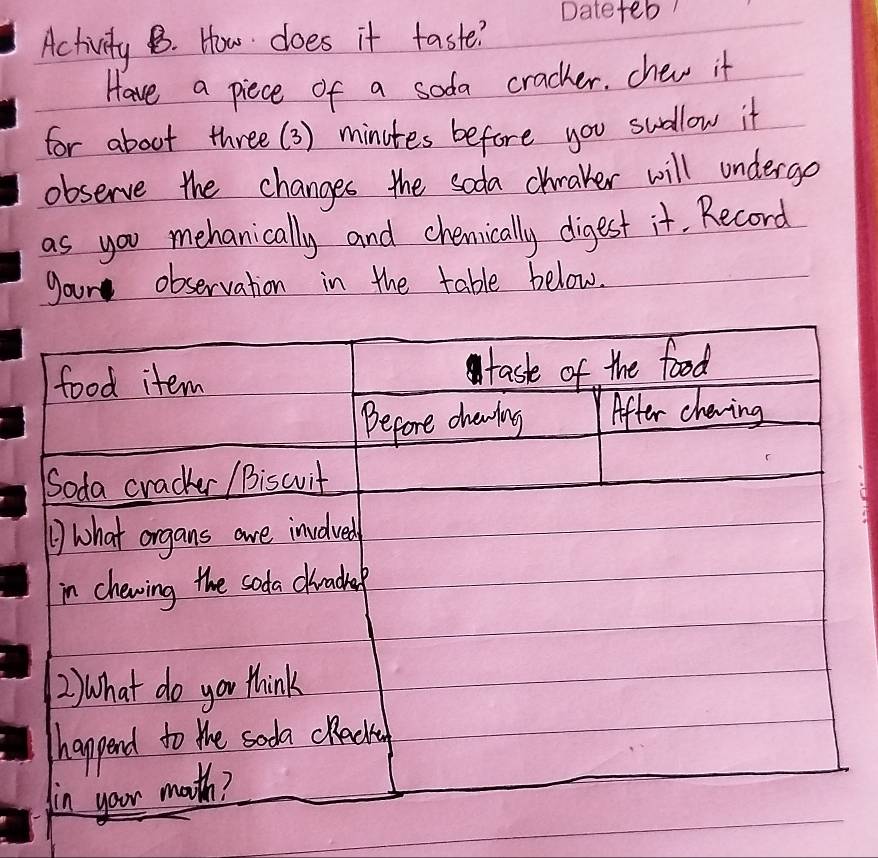 Date feb 1
Activity B. How does it taste?
Have a piece of a soda cracker. chew it
for about three (3) minutes before you swallow it
observe the changes the soda chraker will undergo
as you mehanically and chemically digest it. Record
your observation in the table below.
food item
taste of the food
Before chewing
After chewing
Soda cracker/Biscuit
1) What organs are involved
in chewing the soda
2) What do you think
happend to the soda cracker
in your mouth?